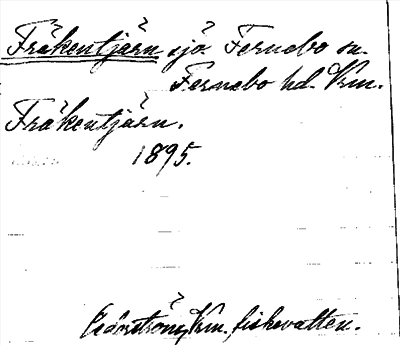 Fräkentjärn sjö Fernebo sn.
Fernebo hd. Vrm.
Fräkentjärn.
1895.
Cederström, Vrm. fiskevatten.